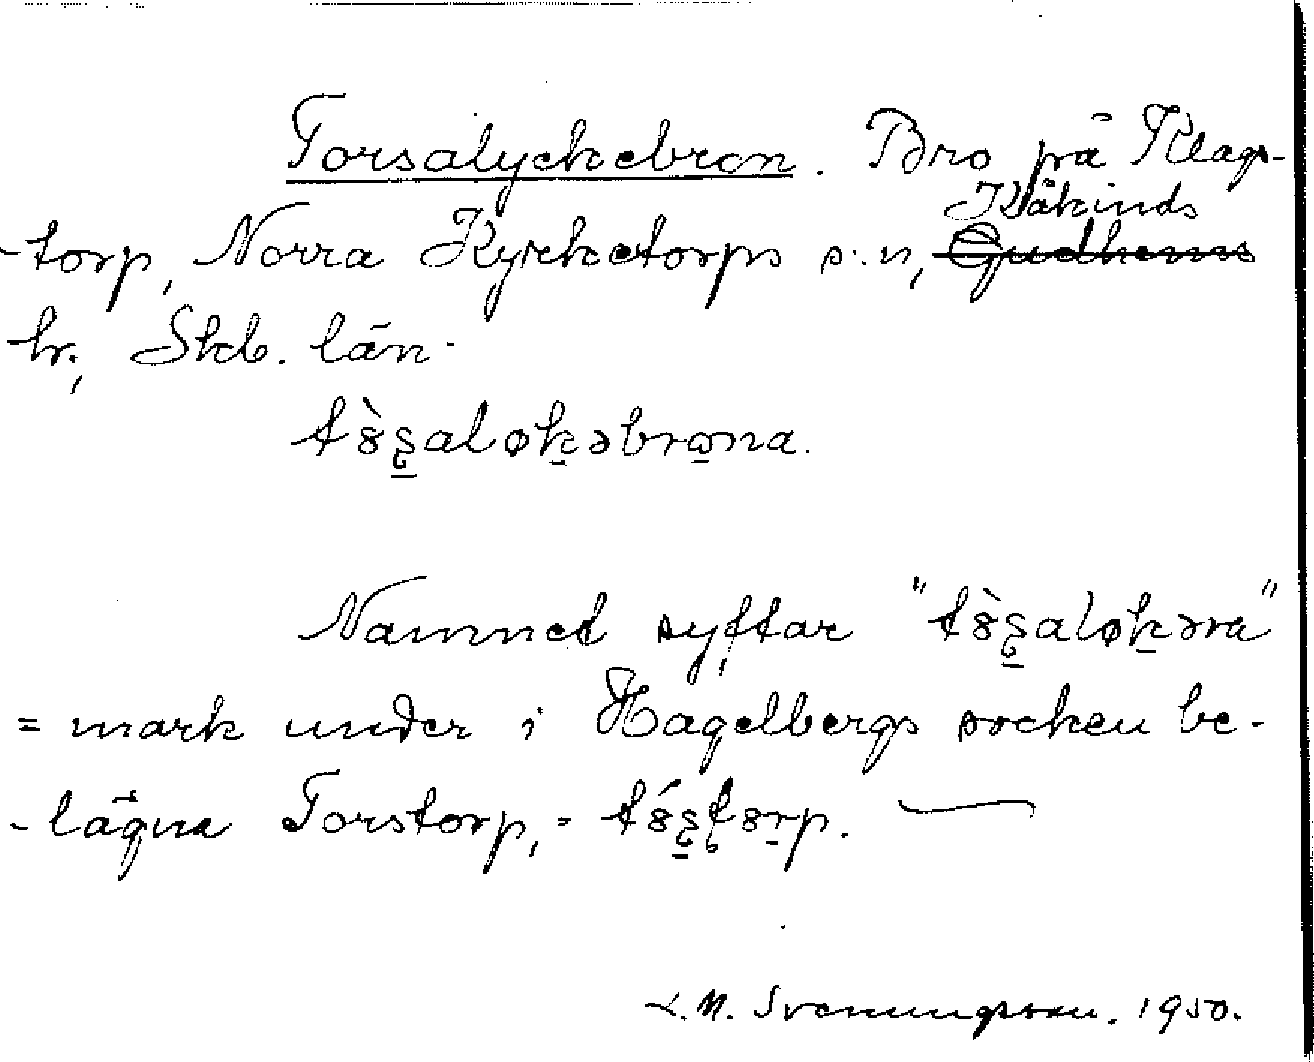 Torsalyckebron. Bro på Klags-
-torp, Norra Kyrketorps s:n, Kåkinds ~~Gudhems~~
hr., Skb. län.
tȣ̀ʂalǿkəbrona.
Namnet syftar "tȣ̀ʂaløkəra"
= mark under i Hagelbergs socken be-
-lägna Torstorp, = tȣ́ʂʈȣrp.
L.M. Svenungsson. 1950.